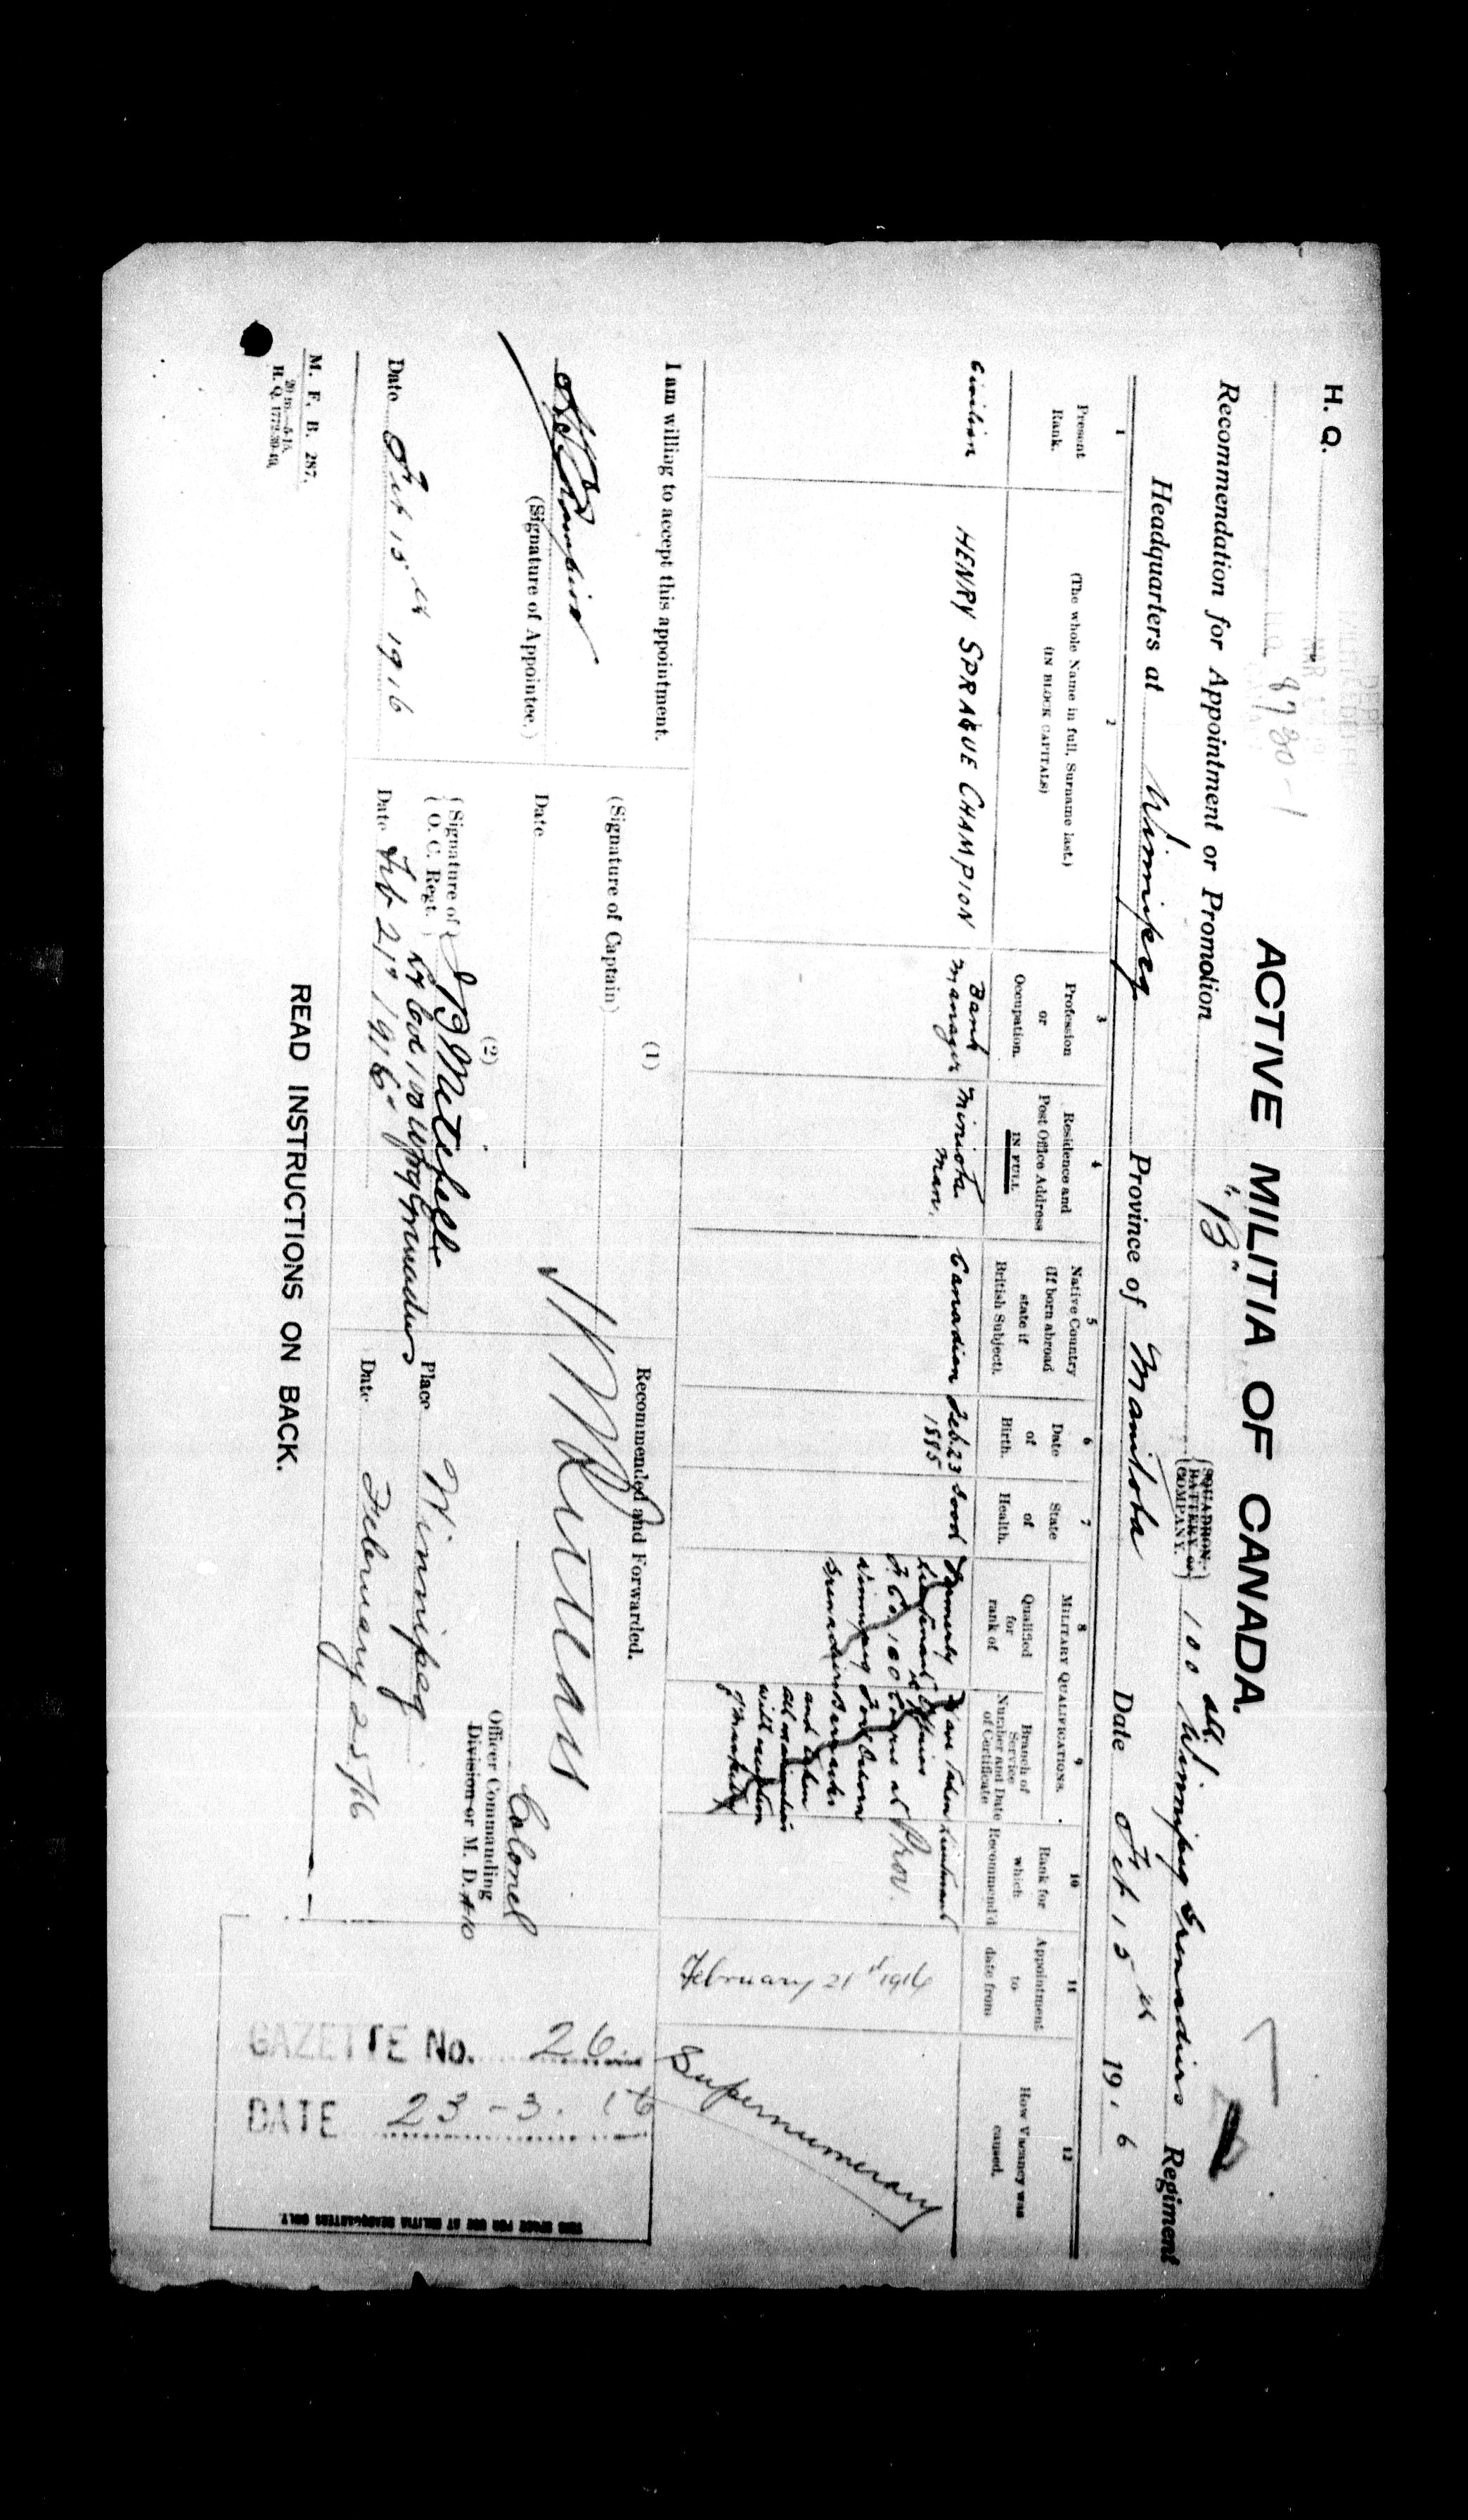 H. Q.
8730-1
ACTIVE MILITIA OF CANADA.
Recommendation for Appointment or Promotion "B" { SQUADRON. BATTERY or COMPANY. } 100 Winnipeg Grenadiers Regiment
Headquarters at Winnipeg Province of Manitoba Date Feb 15th 1916
1
Present
Rank.
2
(The whole Name in full, Surname last.)
(IN BLOCK CAPITALS)
3
Profession
or
Occupation.
4
Residence and
Post Office Address
IN FULL
5
Native Country
(If born abroad
state if
British Subject).
6
Date
of
Birth.
7
State
of
Health.
MILITARY QUALIFICATIONS.
8
Qualified
for
rank of
9
Branch of
Service
Number and Date
of Certificate
10
Rank for
which
Recommend'd
11
Appointment
to
date from
12
How Vacancy was
caused.
Civilian
HENRY SPRAGUE CHAMPION
Bank
Manager
Miniota
Man.
Canadian
Feb. 23
1885
Good
Formerly
Lieutenant
100
Winnipeg
Grenadiers
Have taken
Officers
Course at
Fort Osborne
Barracks
and taken
all
with exception
of Musketry
Lieutenant
Prov.
February 21st 1916
Supernumerary
I am willing to accept this appointment.
HS Champion
(Signature of Appointee.)
Date Feb 15th 1916
(1)
(Signature of Captain)
Date
(2)
{ Signature of }
{ O. C. Regt. } JB Mitchell
Lt Col 100 Wpg Grenadiers
Date Feb 21st 1916
Recommended and Forwarded.
HN Ruttan
Colonel
Officer Commanding
Division or M. D. #10
Place Winnipeg
Date February 25/16
GAZETTE No. 26
DATE 23-3.16
THIS SPACE FOR USE AT MILITIA HEADQUARTERS ONLY.
M. F. B. 287.
20 m.-5-15.
H. Q. 1772-39-49.
READ INSTRUCTIONS ON BACK.